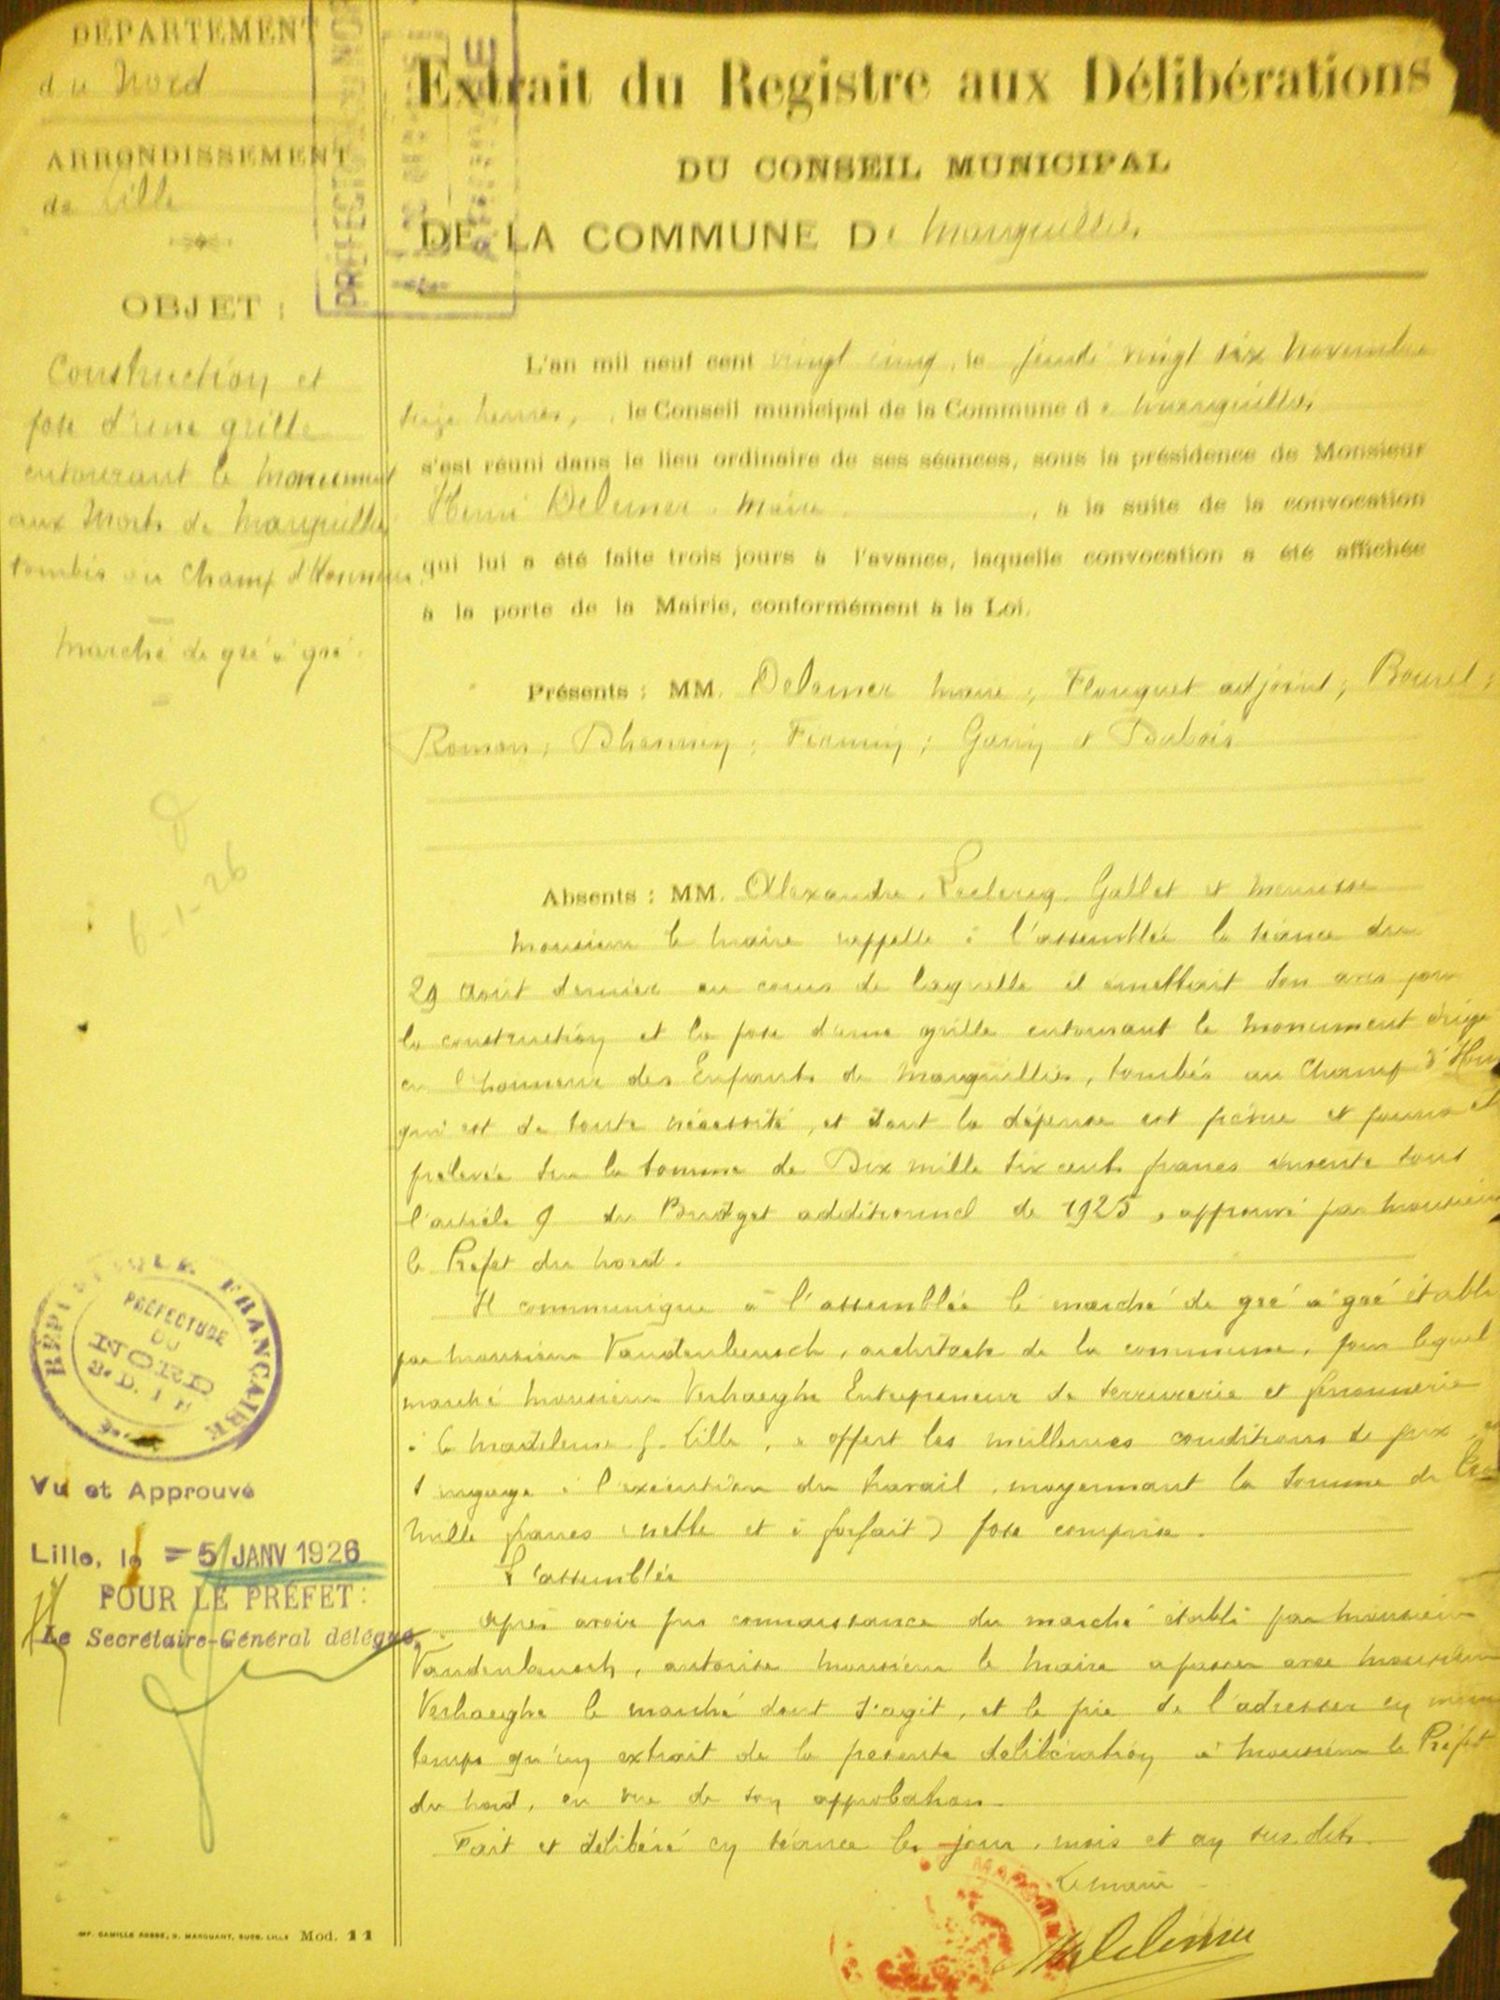 DÉPARTEMENT
du Nord
ARRONDISSEMENT
de Lille
OBJET :
Construction et
pose d'une grille
entourant le Monument
aux Morts de Marquillies
tombés au Champ d'Honneur
Marché de gré à gré.
6-1-26
RÉPUBLIQUE FRANÇAISE
PRÉFECTURE
DU
NORD
Vu et Approuvé
Lille, le - 5 JANV 1926
POUR LE PRÉFET :
Le Secrétaire-Général délégué,
IMP. CAMILLE ROBBE, MARQUANT, SUCR, LILLE Mod. 11
PRÉFECTURE DU NORD
Extrait du Registre aux Délibérations
DU CONSEIL MUNICIPAL
DE LA COMMUNE De Marquillies
L'an mil neuf cent vingt cinq, le jeudi vingt six Novembre
seize heures, le Conseil municipal de la Commune de Marquillies
s'est réuni dans le lieu ordinaire de ses séances, sous la présidence de Monsieur
Henri Delemer Maire, à la suite de la convocation
qui lui a été faite trois jours à l'avance, laquelle convocation a été affichée
à la porte de la Mairie, conformément à la Loi.
Présents : MM. Delemer Maire ; Flouquet adjoint ;
Romon ; Dhennin ; Firmin ; et Dubois
Absents : MM. Alexandre, Leclercq, Gallet et
Monsieur le Maire rappelle à l'assemblée la séance du
29 Août dernier au cours de laquelle il émettait son avis pour
la construction et la pose d'une grille entourant le Monument érigé
en l'honneur des Enfants de Marquillies, tombés au Champ d'Hon
qui est de toute nécessité, et dont la dépense est prévue et pourra et
prélevée sur la somme de Dix mille six cents francs inscrite sous
l'article 9 du Budget additionnel de 1925, approuvé par Monsieur
le Préfet du Nord.
Il communique à l'assemblée le marché de gré à gré établi
par Monsieur Vandenbeusch, architecte de la commune, pour lequel
marché Monsieur Verhaeghe Entrepreneur de serrurerie et ferronnerie
à la Madeleine-f-Lille, a offert les meilleures conditions de prix
s'engage à l'exécution du travail, moyennant la somme de
mille francs (nette et à forfait) pose comprise.
L'assemblée
après avoir pris connaissance du marché établi par Monsieur
Vandenbeusch, autorise Monsieur le Maire à passer avec Monsieur
Verhaeghe le marché dont s'agit, et le prie de l'adresser en même
temps qu'un extrait de la présente délibération à Monsieur le Préfet
du Nord, en vue de son approbation.
Fait et délibéré en séance les jour, mois et an sus dits.
Le Maire
HDelemer